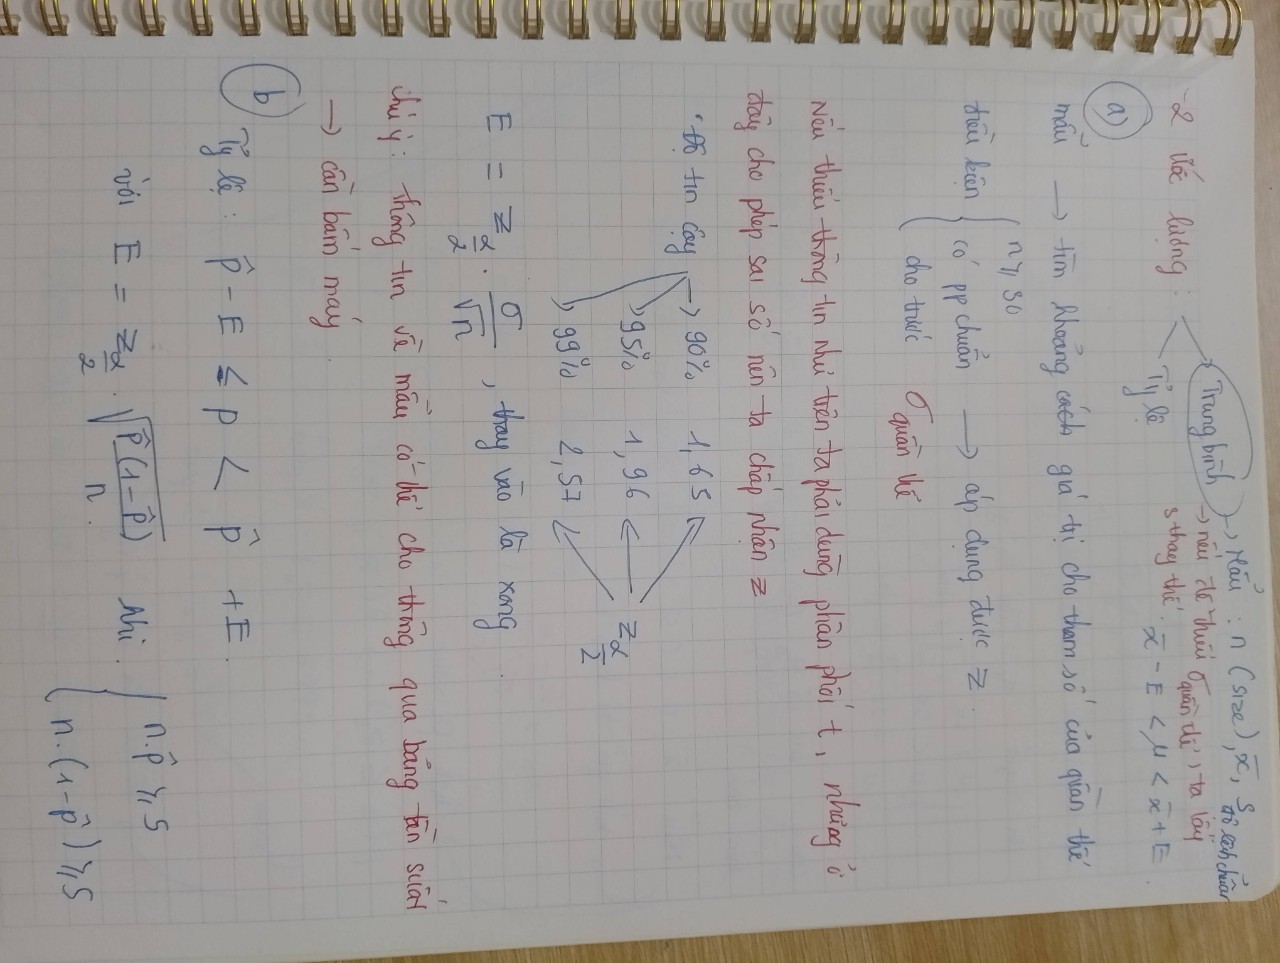 2 ước lượng : Trung bình → Mẫu : n (size), x̄, s
độ lệch chuẩn
→ nếu đề thiếu σ quần thể, ta lấy
s thay thế.
Tỷ lệ
x̄ - E < μ < x̄ + E.
a)
mẫu → tìm khoảng cách giá trị cho tham số của quần thể
điều kiện { n ≥ 30
có pp chuẩn → áp dụng được z.
cho trước σ quần thể
Nếu thiếu thông tin như trên ta phải dùng phân phối t, nhưng ở
đây cho phép sai số nên ta chấp nhận z
• độ tin cậy → 90% 1,65
→ 95% 1,96 ← z α/2
→ 99% 2,57
E = z α/2 . σ/√n , thay vào là xong.
chú ý : thông tin về mẫu có thể cho thông qua bảng tần suất
→ cần bấm máy.
b
Tỷ lệ : p̂ - E ≤ p < p̂ + E.
với E = z α/2 . √(p̂(1-p̂)/n). khi. { n.p̂ ≥ 5
n.(1-p̂) ≥ 5